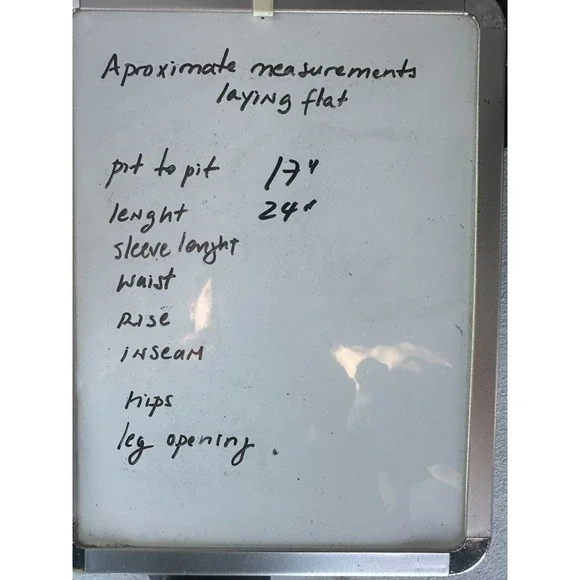 Aproximate measurements
laying flat
pit to pit 17"
lenght 24"
sleeve lenght
waist
Rise
inseam
hips
leg opening.